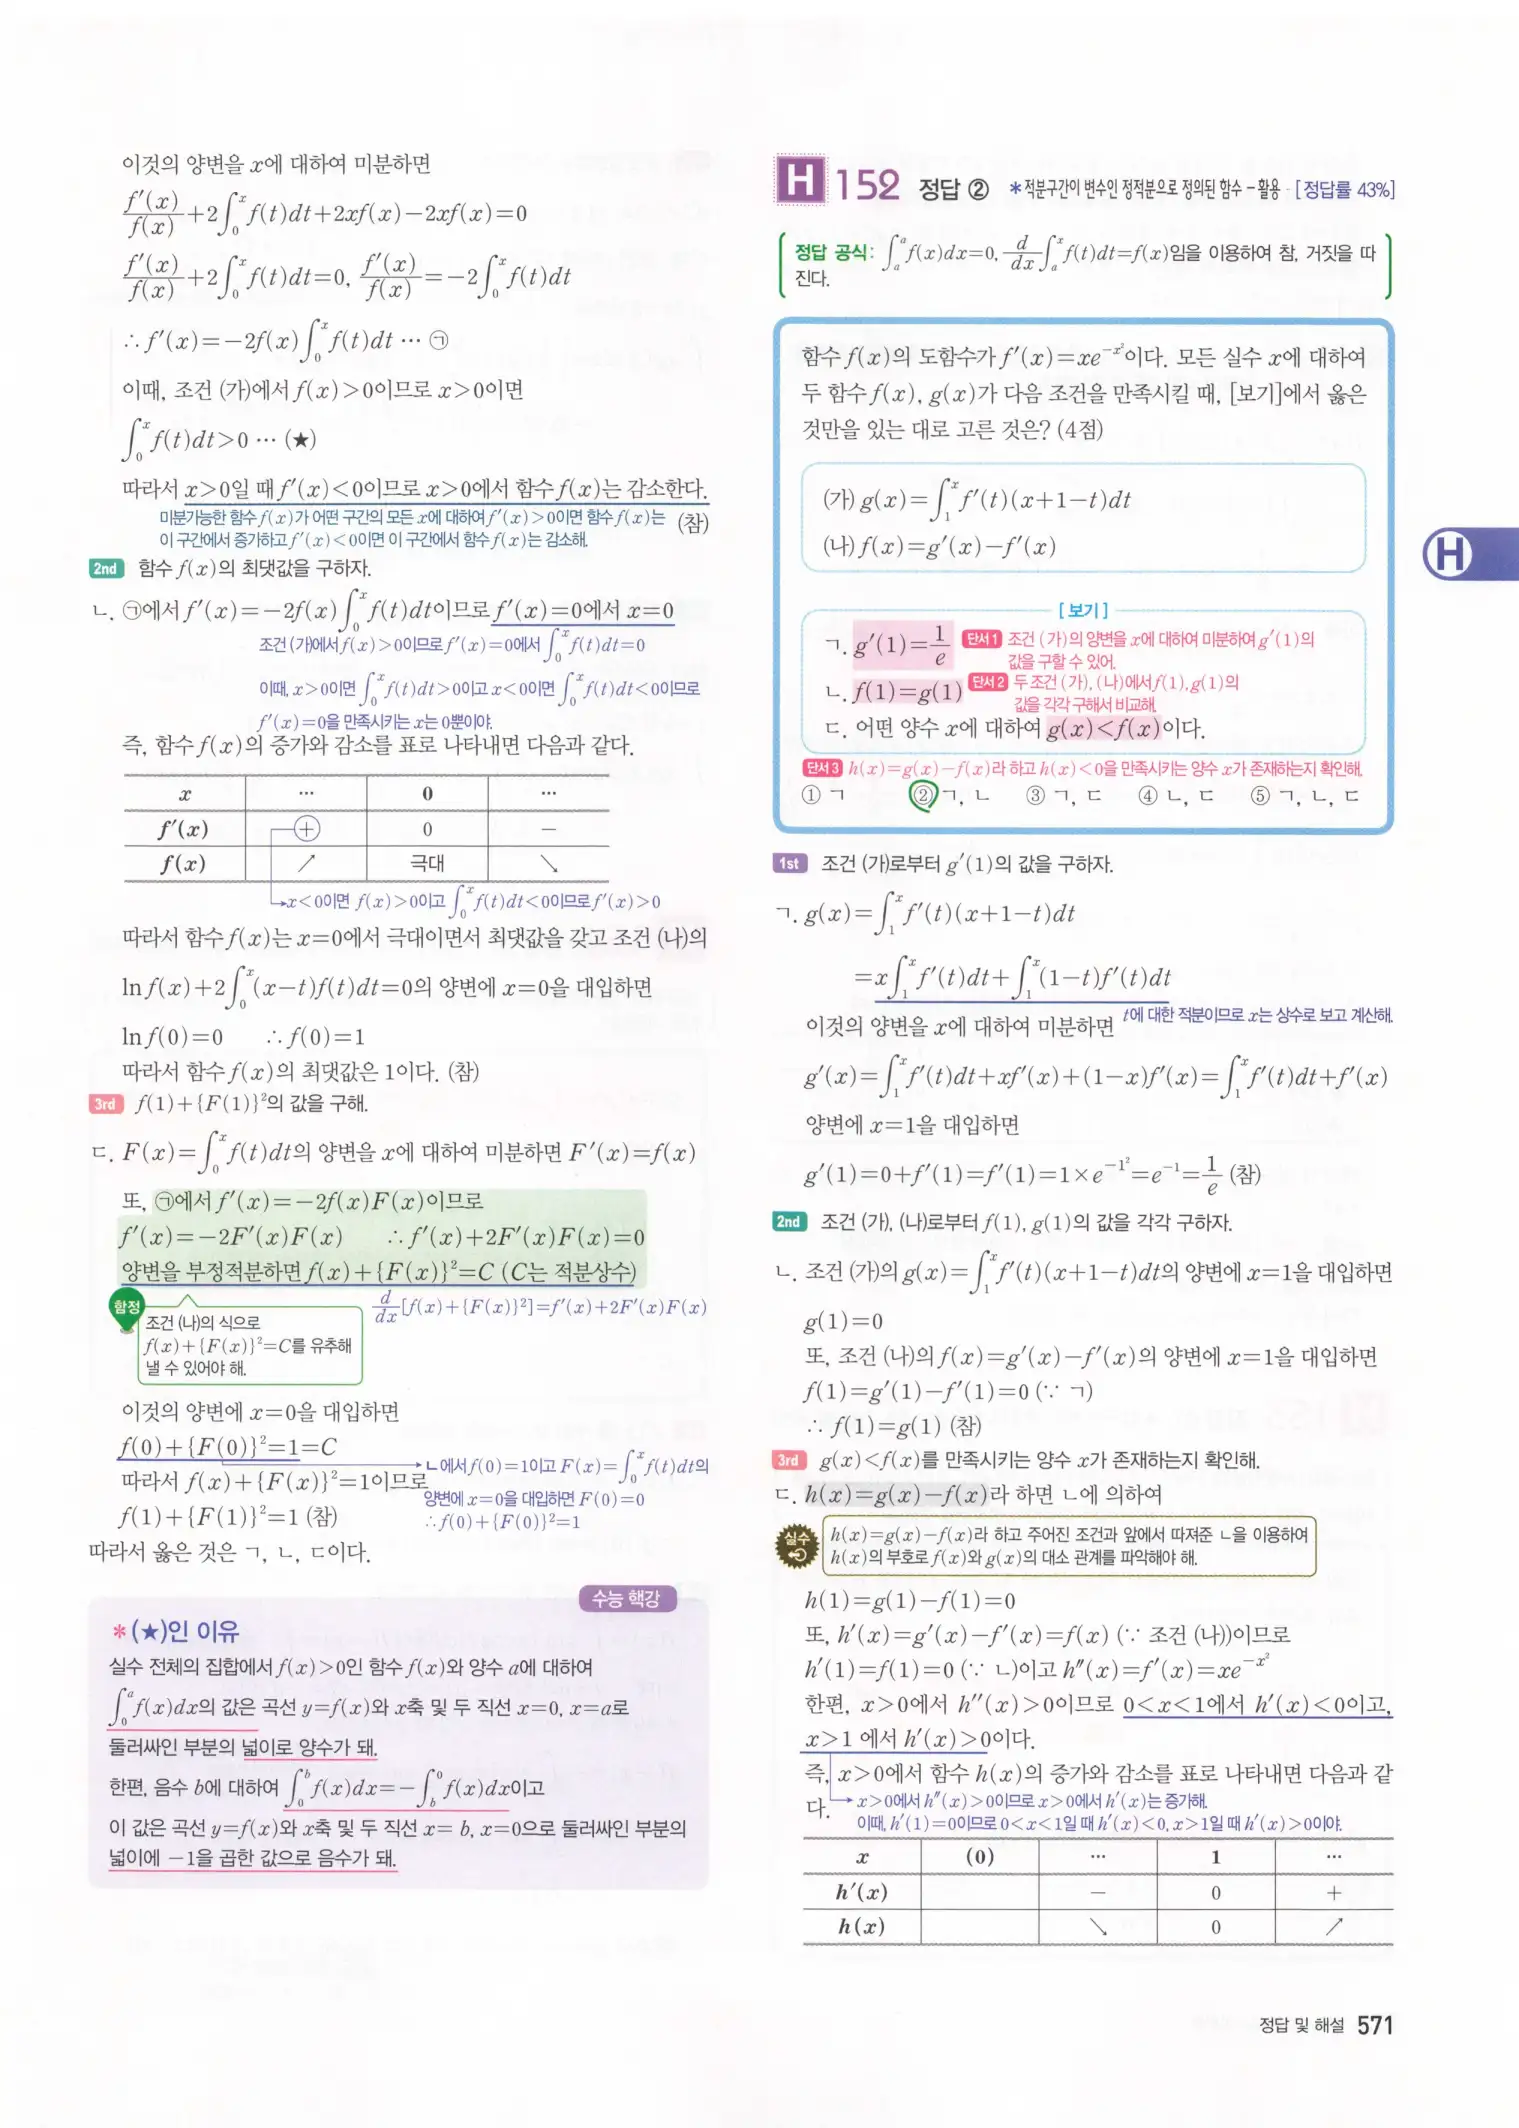 이것의 양변을 x에 대하여 미분하면
f′(x)/f(x)+2∫₀ˣf(t)dt+2xf(x)−2xf(x)=0
f′(x)/f(x)+2∫₀ˣf(t)dt=0, f′(x)/f(x)=−2∫₀ˣf(t)dt
∴ f′(x)=−2f(x)∫₀ˣf(t)dt ⋯ ㉠
이때, 조건 (가)에서 f(x)>0이므로 x>0이면
∫₀ˣf(t)dt>0 ⋯ (★)
따라서 x>0일 때 f′(x)<0이므로 x>0에서 함수 f(x)는 감소한다.
미분가능한 함수 f(x)가 어떤 구간의 모든 x에 대하여 f′(x)>0이면 함수 f(x)는 (참)
이 구간에서 증가하고 f′(x)<0이면 이 구간에서 함수 f(x)는 감소해.
2nd 함수 f(x)의 최댓값을 구하자.
ㄴ. ㉠에서 f′(x)=−2f(x)∫₀ˣf(t)dt이므로 f′(x)=0에서 x=0
조건 (가)에서 f(x)>0이므로 f′(x)=0에서 ∫₀ˣf(t)dt=0
이때, x>0이면 ∫₀ˣf(t)dt>0이고 x<0이면 ∫₀ˣf(t)dt<0이므로
f′(x)=0을 만족시키는 x는 0뿐이야.
즉, 함수 f(x)의 증가와 감소를 표로 나타내면 다음과 같다.
x ⋯ 0 ⋯
f′(x) + 0 −
f(x) ↗ 극대 ↘
x<0이면 f(x)>0이고 ∫₀ˣf(t)dt<0이므로 f′(x)>0
따라서 함수 f(x)는 x=0에서 극대이면서 최댓값을 갖고 조건 (나)의
ln f(x)+2∫₀ˣ(x−t)f(t)dt=0의 양변에 x=0을 대입하면
ln f(0)=0 ∴ f(0)=1
따라서 함수 f(x)의 최댓값은 1이다. (참)
3rd f(1)+{F(1)}²의 값을 구해.
ㄷ. F(x)=∫₀ˣf(t)dt의 양변을 x에 대하여 미분하면 F′(x)=f(x)
또, ㉠에서 f′(x)=−2f(x)F(x)이므로
f′(x)=−2F′(x)F(x) ∴ f′(x)+2F′(x)F(x)=0
양변을 부정적분하면 f(x)+{F(x)}²=C (C는 적분상수)
d/dx[f(x)+{F(x)}²]=f′(x)+2F′(x)F(x)
함정
조건 (나)의 식으로
f(x)+{F(x)}²=C를 유추해
낼 수 있어야 해.
이것의 양변에 x=0을 대입하면
f(0)+{F(0)}²=1=C
ㄴ에서 f(0)=1이고 F(x)=∫₀ˣf(t)dt의
양변에 x=0을 대입하면 F(0)=0
∴ f(0)+{F(0)}²=1
따라서 f(x)+{F(x)}²=1이므로
f(1)+{F(1)}²=1 (참)
따라서 옳은 것은 ㄱ, ㄴ, ㄷ이다.
수능 핵강
*(★)인 이유
실수 전체의 집합에서 f(x)>0인 함수 f(x)와 양수 a에 대하여
∫₀ᵃf(x)dx의 값은 곡선 y=f(x)와 x축 및 두 직선 x=0, x=a로
둘러싸인 부분의 넓이로 양수가 돼.
한편, 음수 b에 대하여 ∫₀ᵇf(x)dx=−∫_b⁰f(x)dx이고
이 값은 곡선 y=f(x)와 x축 및 두 직선 x=b, x=0으로 둘러싸인 부분의
넓이에 −1을 곱한 값으로 음수가 돼.
H 152 정답 ② *적분구간이 변수인 정적분으로 정의된 함수 − 활용 [정답률 43%]
정답 공식: ∫ₐᵃf(x)dx=0, d/dx∫ₐˣf(t)dt=f(x)임을 이용하여 참, 거짓을 따
진다.
함수 f(x)의 도함수가 f′(x)=xe^(−x²)이다. 모든 실수 x에 대하여
두 함수 f(x), g(x)가 다음 조건을 만족시킬 때, [보기]에서 옳은
것만을 있는 대로 고른 것은? (4점)
(가) g(x)=∫₁ˣf′(t)(x+1−t)dt
(나) f(x)=g′(x)−f′(x)
[보기]
ㄱ. g′(1)=1/e 단서1 조건 (가)의 양변을 x에 대하여 미분하여 g′(1)의
값을 구할 수 있어.
ㄴ. f(1)=g(1) 단서2 두 조건 (가), (나)에서 f(1), g(1)의
값을 각각 구해서 비교해.
ㄷ. 어떤 양수 x에 대하여 g(x)<f(x)이다.
단서3 h(x)=g(x)−f(x)라 하고 h(x)<0을 만족시키는 양수 x가 존재하는지 확인해.
① ㄱ ② ㄱ, ㄴ ③ ㄱ, ㄷ ④ ㄴ, ㄷ ⑤ ㄱ, ㄴ, ㄷ
1st 조건 (가)로부터 g′(1)의 값을 구하자.
ㄱ. g(x)=∫₁ˣf′(t)(x+1−t)dt
=x∫₁ˣf′(t)dt+∫₁ˣ(1−t)f′(t)dt
t에 대한 적분이므로 x는 상수로 보고 계산해.
이것의 양변을 x에 대하여 미분하면
g′(x)=∫₁ˣf′(t)dt+xf′(x)+(1−x)f′(x)=∫₁ˣf′(t)dt+f′(x)
양변에 x=1을 대입하면
g′(1)=0+f′(1)=f′(1)=1×e^(−1²)=e⁻¹=1/e (참)
2nd 조건 (가), (나)로부터 f(1), g(1)의 값을 각각 구하자.
ㄴ. 조건 (가)의 g(x)=∫₁ˣf′(t)(x+1−t)dt의 양변에 x=1을 대입하면
g(1)=0
또, 조건 (나)의 f(x)=g′(x)−f′(x)의 양변에 x=1을 대입하면
f(1)=g′(1)−f′(1)=0 (∵ ㄱ)
∴ f(1)=g(1) (참)
3rd g(x)<f(x)를 만족시키는 양수 x가 존재하는지 확인해.
ㄷ. h(x)=g(x)−f(x)라 하면 ㄴ에 의하여
실수
h(x)=g(x)−f(x)라 하고 주어진 조건과 앞에서 따져준 ㄴ을 이용하여
h(x)의 부호로 f(x)와 g(x)의 대소 관계를 파악해야 해.
h(1)=g(1)−f(1)=0
또, h′(x)=g′(x)−f′(x)=f(x) (∵ 조건 (나))이므로
h′(1)=f(1)=0 (∵ ㄴ)이고 h″(x)=f′(x)=xe^(−x²)
한편, x>0에서 h″(x)>0이므로 0<x<1에서 h′(x)<0이고,
x>1 에서 h′(x)>0이다.
즉, x>0에서 함수 h(x)의 증가와 감소를 표로 나타내면 다음과 같
다.
x>0에서 h″(x)>0이므로 x>0에서 h′(x)는 증가해.
이때, h′(1)=0이므로 0<x<1일 때 h′(x)<0, x>1일 때 h′(x)>0이야.
x (0) ⋯ 1 ⋯
h′(x) − 0 +
h(x) ↘ 0 ↗
H
정답 및 해설 571